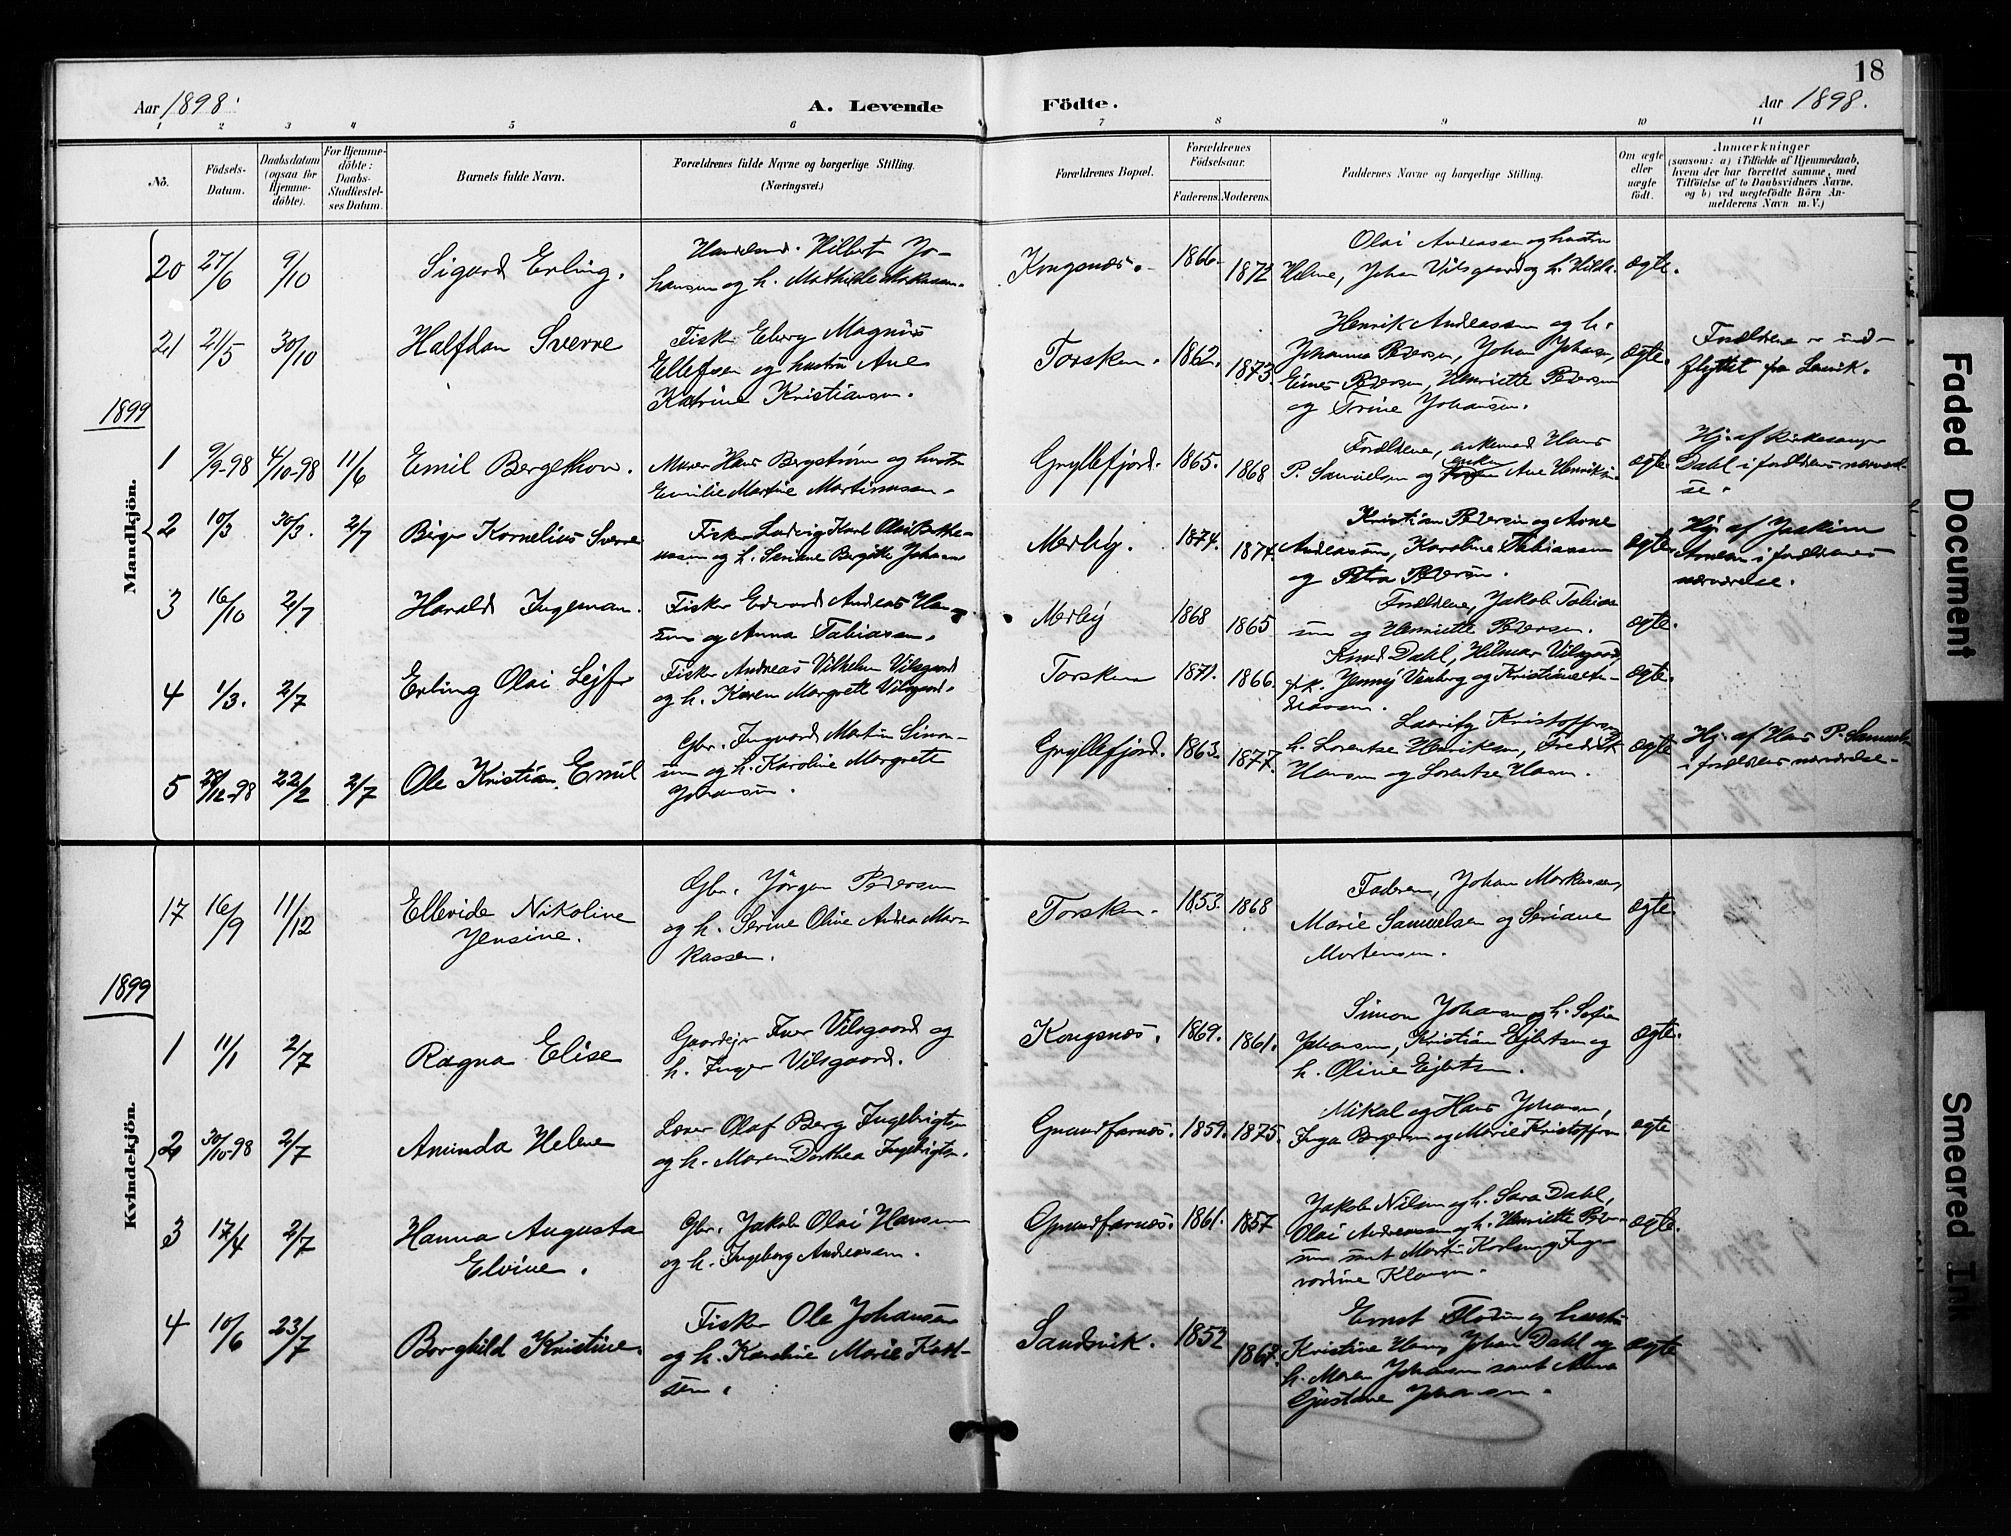 18
Aar 1898.
A. Levende
Födte.
Aar 1898.
1 2 3 4 5 6 7 8 9 10 11
No.
Födsels-
Datum.
Daabsdatum
(ogsaa for
Hjemme-
döbte).
For Hjemme-
döbte:
Daabs-
Stadfæstel-
ses Datum.
Barnets fulde Navn.
Forældrenes fulde Navne og borgerlige Stilling.
(Næringsvei.)
Forældrenes Bopæl.
Forældrenes
Födselsaar.
Faderens. Moderens.
Faddernes Navne og borgerlige Stilling.
Om ægte
eller
uægte
födt.
Anmærkninger
(saasom: a) i Tilfælde af Hjemmedaab,
hvem der har forrettet samme, med
Tilföielse af to Daabsvidners Navne,
og b) ved uægtefödte Börn An-
melderens Navn m. V.)
Mandkjön.
20 27/6 9/10 Sigurd Erling.
Hilbert Jo-
hansen og h. Mathilde
Kongsnæs. 1866. 1872
Olai Andreassen og hustru
Helene, Johan Vilsgaard og h. Hilda
ægte.
21 21/5 30/10 Halfdan Sverre
Fisker Eberg Magnus
Ellefsen og hustru Ane
Katrine Kristiansen.
Torsken. 1862. 1873.
Henrik Andreassen og h.
Johanna Pedersen, Johan Johansen,
Pedersen, Henriette Pedersen
og Trine Johansen.
ægte.
Forældrene er ind-
flyttet fra
1899
1 9/9-98 4/10-98 11/6 Emil Bergethon.
Murer Hans Bergstrøm og hustru
Emilie Martine Martinussen.
Gryllefjord. 1865. 1868
Forældrene, enkemand Hans
P. Samuelsen og enken Ane Henriksen
ægte.
Hj. af Kirkesanger
Dahl i forældrenes nærværel-
se.
2 10/3 30/3. 2/7 Birger Kornelius Sverre
Fisker Ludvig Karl Olai
og h. Seriane Birgitte Johansen
Medby. 1874. 1874.
Kristian Pedersen og Arne
Andreassen, Karoline Tobiassen
og Petra Pedersen.
ægte.
Hj. af Joakim
i forældrenes
nærværelse.
3 16/10 2/7 Harald Ingeman.
Fisker Edvard Andreas Han-
sen og Anna Tobiassen.
Medby 1868 1865
Forældrene, Jakob Tobias-
sen og Henriette Pedersen.
ægte.
4 1/3. 2/7 Erling Olai Lejfr
Fisker Andreas Vilhelm Vilsgaard
og h. Karen Margrete Vilsgaard.
Torsken 1871. 1866.
Knud Dahl, Hilmar Vilsgaard,
frk. Jenny og Kristiane An-
dreassen.
ægte.
5 28/12-98 22/2 2/7 Ole Kristian Emil
Gbr. Ingvard Martin Simon-
sen og h. Karoline Margrete
Johansen.
Gryllefjord. 1863. 1877.
Kristoffersen,
h. Lorentse Henriksen, Fredrik
Hansen og Lorentse Hansen.
ægte
Hj. af Hans P. Samuelsen
i forældrenes nærværelse.
Kvindekjön.
17 16/9 11/12 Ellevide Nikoline
Jensine.
Gbr. Jörgen Pedersen
og h. Serine Oline Andrea Mar-
kussen.
Torsken. 1853. 1868
Faderen, Johan Markussen,
Marie Samuelsen og Seriane
Mortensen.
ægte.
1899
1 11/1 2/7 Ragna Elise
Gaardejer Iver Vilsgaard og
h. Inger Vilsgaard.
Kongsnæs. 1869. 1861.
Simon Johansen og h. Sofie
Johansen, Kristian Ejbertsen og
h. Oline Ejbertsen.
ægte.
2 30/10-98 2/7 Aminda Helene
Lærer Olaf Berg Ingebrigtsen
og h. Maren Dorthea Ingebrigtsen.
Grundfarnes. 1859. 1875.
Mikal og Hans Johansen,
Inga og Marie Kristoffersen
ægte
3 17/4 2/7 Hanna Augusta
Elvine.
Gbr. Jakob Olai Hansen
og h. Ingeborg Andreassen.
Grundfarnes. 1861. 1857
Jakob Nilsen og h. Sara Dahl,
Olai Andreassen og h. Henriette Peder-
sen samt Martin Karlsen og Inge-
vardine Klausen.
ægte.
4 10/6 23/7 Borghild Kristine.
Fisker Ole Johansen
og h. Karoline Marie Karl-
sen.
Sandvik. 1852 1867.
Ernst Flodin og hustru
Kristine Hansen, Johan Dahl og
h. Maren Johansen samt Anna
Gustava Johansen.
ægte
Faded Document
Smeared Ink